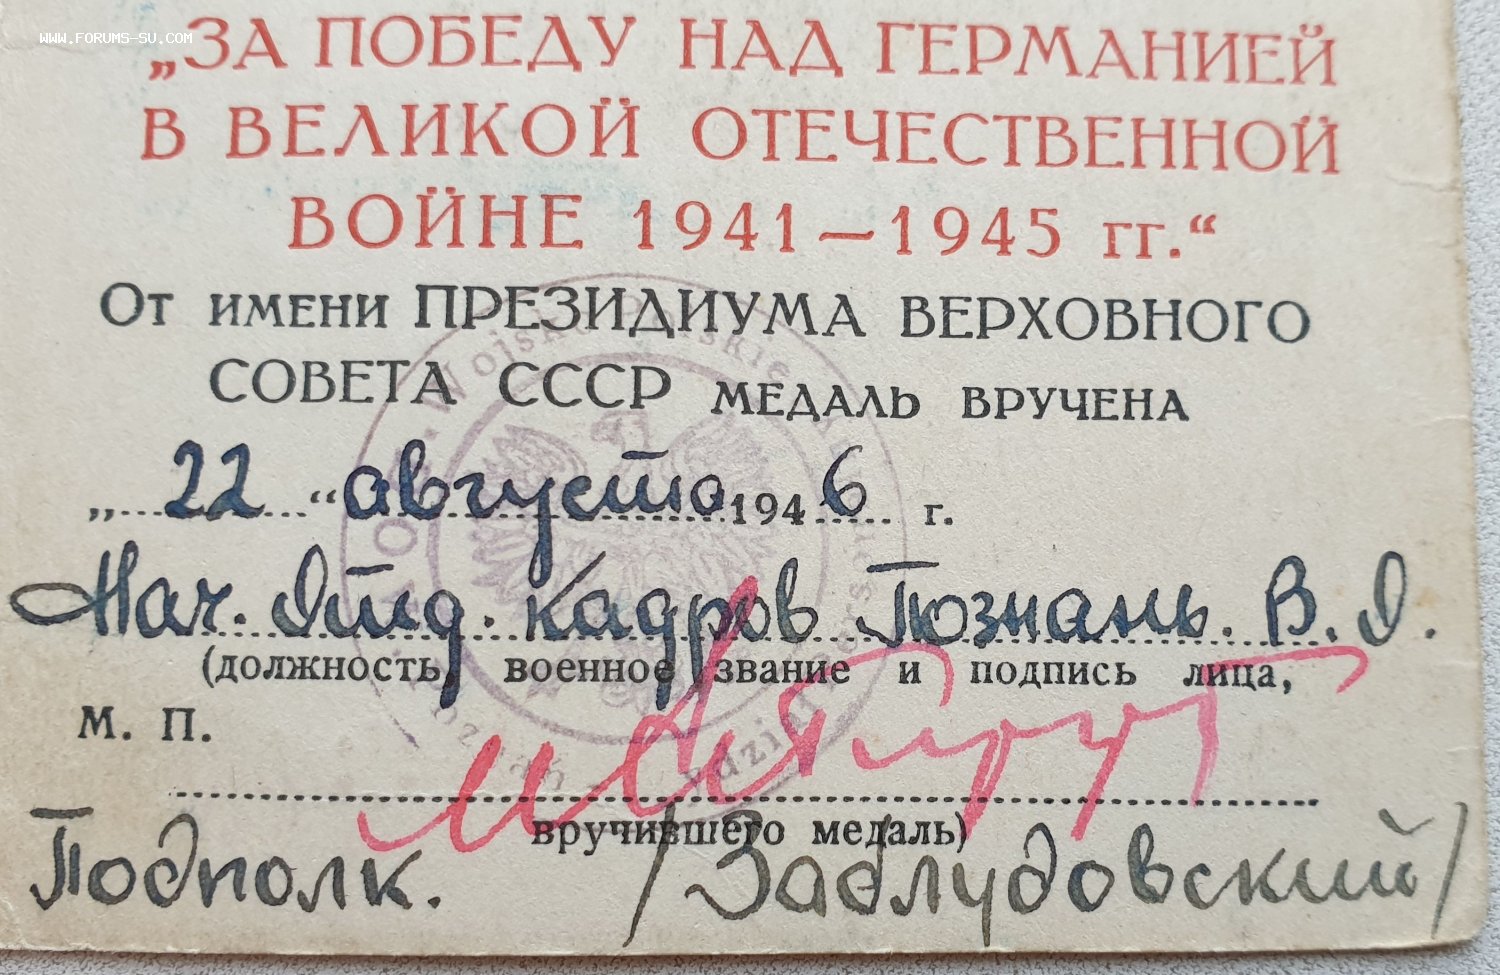 WWW.FORUMS-SU.COM
„ЗА ПОБЕДУ НАД ГЕРМАНИЕЙ
В ВЕЛИКОЙ ОТЕЧЕСТВЕННОЙ
ВОЙНЕ 1941—1945 гг.“
От имени ПРЕЗИДИУМА ВЕРХОВНОГО
СОВЕТА СССР медаль вручена
„22“ августа 1946 г.
Нач. Отд. Кадров Познань. В. О.
(должность, военное звание и подпись лица,
М. П.
вручившего медаль)
Подполк. /Заблудовский/